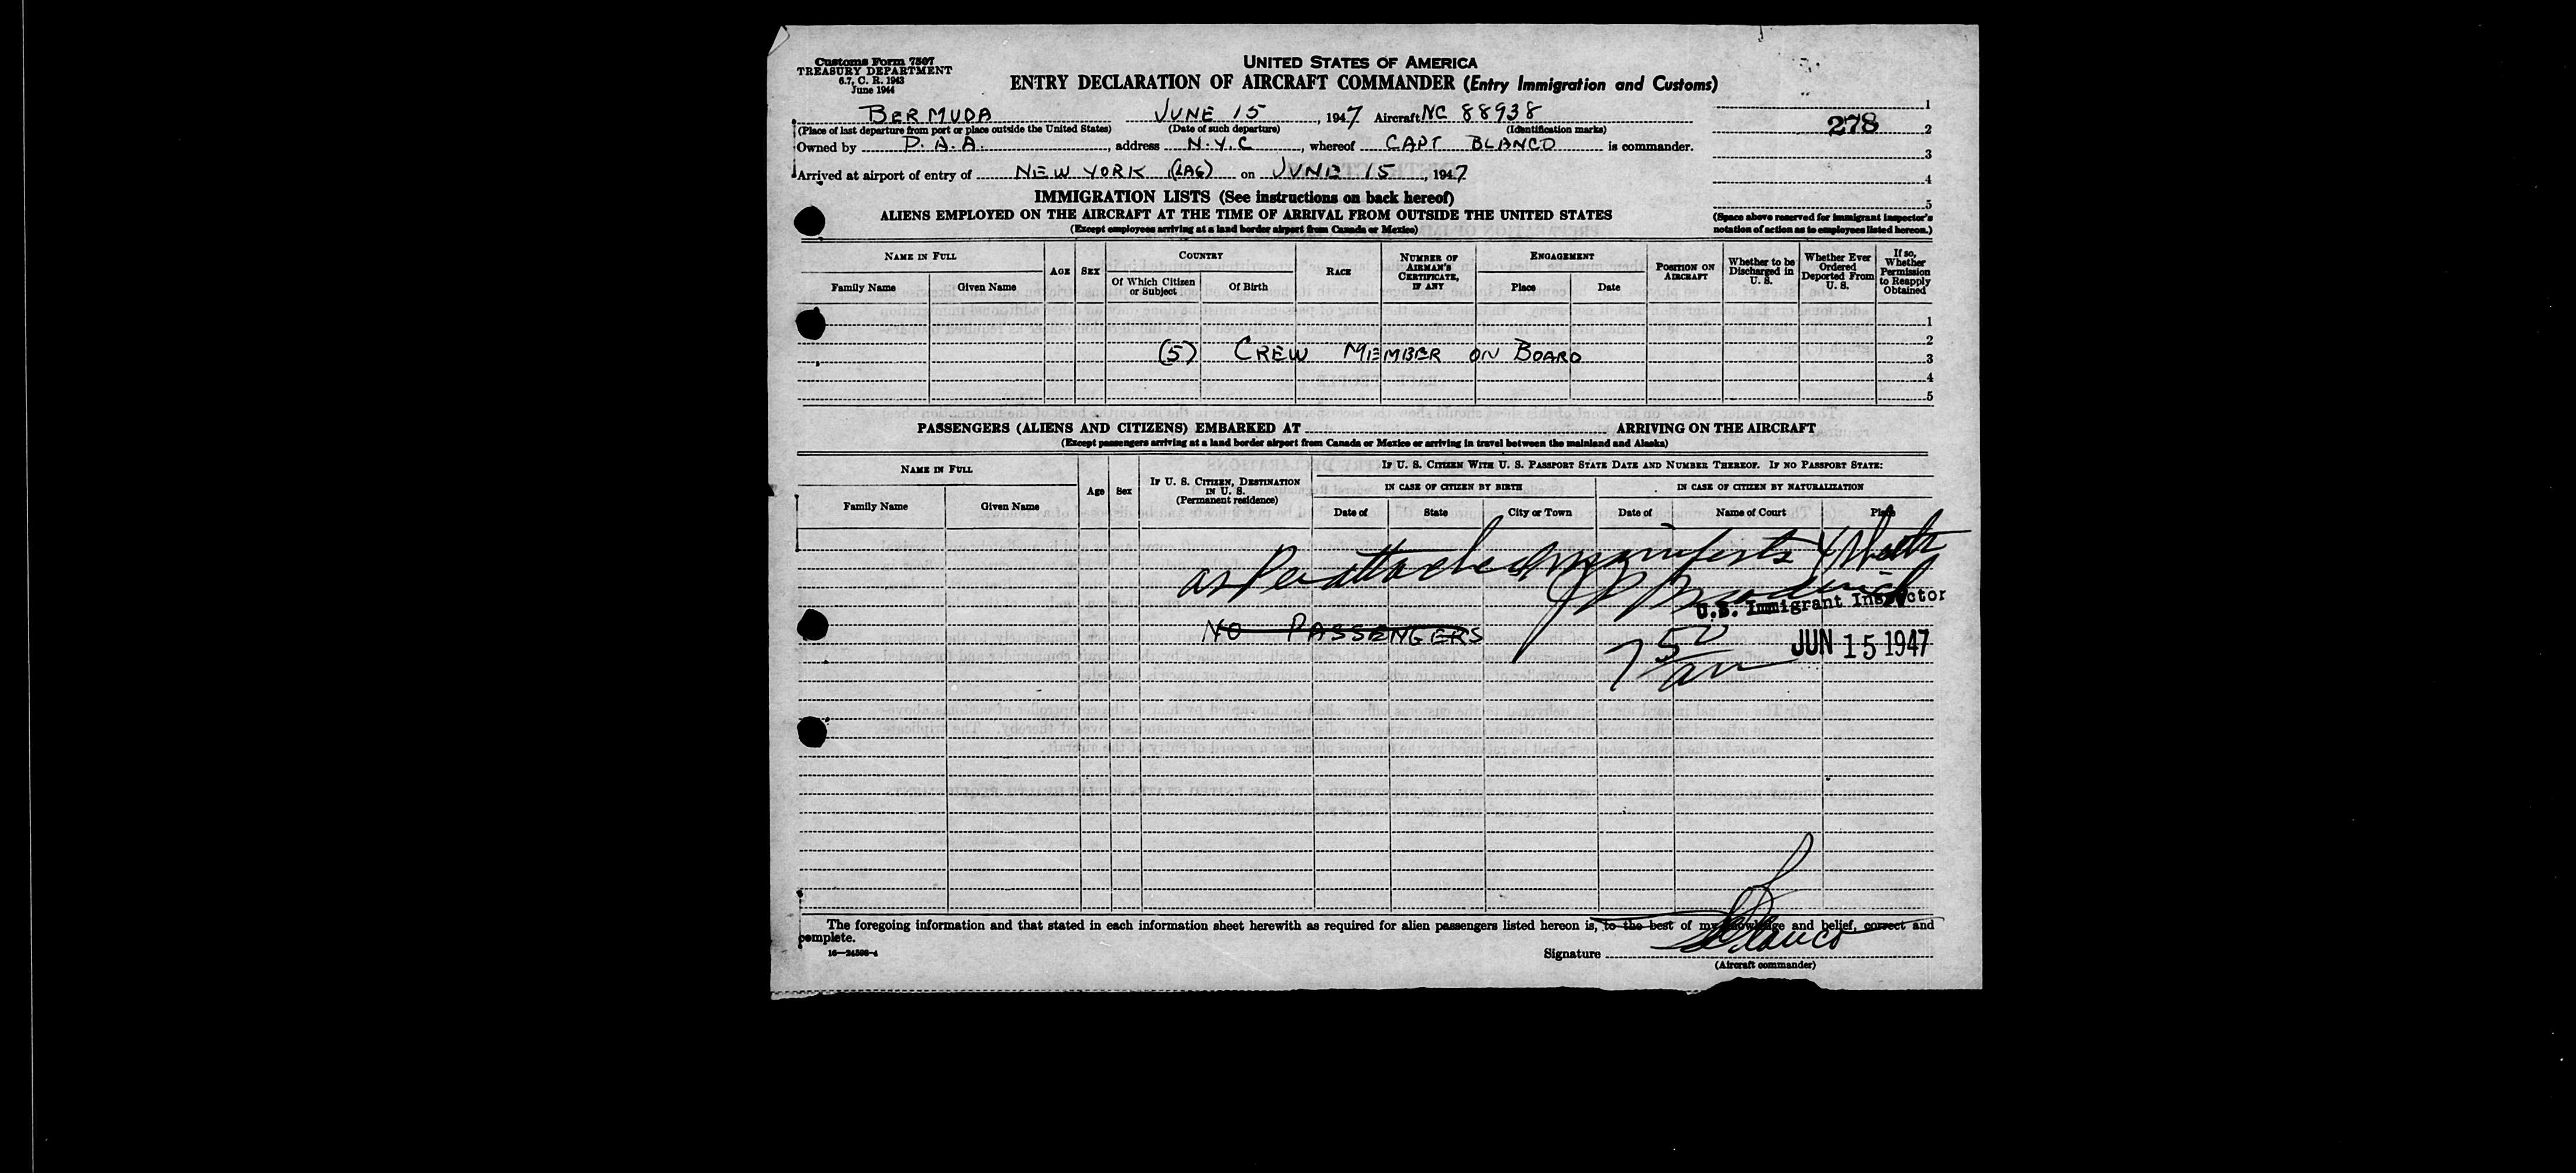 Customs Form 7507
TREASURY DEPARTMENT
6.7, C. R. 1943
June 1944
UNITED STATES OF AMERICA
ENTRY DECLARATION OF AIRCRAFT COMMANDER (Entry Immigration and Customs)
BERMUDA JUNE 15, 1947 Aircraft NC 88938
(Place of last departure from port or place outside the United States) (Date of such departure) (Identification marks)
Owned by P.A.A., address N.Y.C, whereof CAPT BLANCO is commander.
Arrived at airport of entry of NEW YORK (LAG) on JUNE 15, 1947
1
278 2
3
4
5
(Space above reserved for immigrant inspector's
notation of action as to employees listed hereon.)
IMMIGRATION LISTS (See instructions on back hereof)
ALIENS EMPLOYED ON THE AIRCRAFT AT THE TIME OF ARRIVAL FROM OUTSIDE THE UNITED STATES
(Except employees arriving at a land border airport from Canada or Mexico)
NAME IN FULL
Family Name Given Name
AGE SEX
COUNTRY
Of Which Citizen or Subject Of Birth
RACE
NUMBER OF AIRMAN'S CERTIFICATE, IF ANY
ENGAGEMENT
Place Date
POSITION ON AIRCRAFT
Whether to be Discharged in U. S.
Whether Ever Ordered Deported From U. S.
If so, Whether Permission to Reapply Obtained
1
2
(5) CREW MEMBER ON BOARD 3
4
5
PASSENGERS (ALIENS AND CITIZENS) EMBARKED AT ARRIVING ON THE AIRCRAFT
(Except passengers arriving at a land border airport from Canada or Mexico or arriving in travel between the mainland and Alaska)
NAME IN FULL
Family Name Given Name
Age Sex
IF U. S. CITIZEN, DESTINATION IN U. S.
(Permanent residence)
IF U. S. CITIZEN WITH U. S. PASSPORT STATE DATE AND NUMBER THEREOF. IF NO PASSPORT STATE:
IN CASE OF CITIZEN BY BIRTH IN CASE OF CITIZEN BY NATURALIZATION
Date of State City or Town Date of Name of Court Place
as Per attached manifests
U.S. Immigrant Inspector
NO PASSENGERS
7 50 am
JUN 15 1947
The foregoing information and that stated in each information sheet herewith as required for alien passengers listed hereon is, to the best of my knowledge and belief, correct and
complete.
16—24598-4
Signature Blanco
(Aircraft commander)